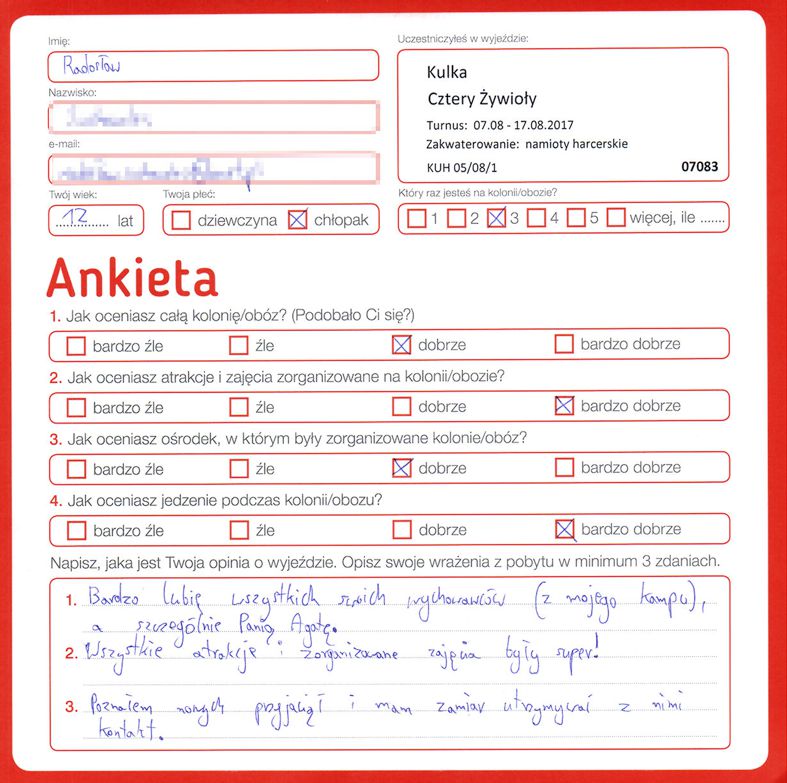 Imię:
Radosław
Nazwisko:
e-mail:
Twój wiek:
12 lat
Twoja płeć:
dziewczyna chłopak
Uczestniczyłeś w wyjeździe:
Kulka
Cztery Żywioły
Turnus: 07.08 - 17.08.2017
Zakwaterowanie: namioty harcerskie
KUH 05/08/1 07083
Który raz jesteś na kolonii/obozie?
1 2 3 4 5 więcej, ile .......
Ankieta
1. Jak oceniasz całą kolonię/obóz? (Podobało Ci się?)
bardzo źle źle dobrze bardzo dobrze
2. Jak oceniasz atrakcje i zajęcia zorganizowane na kolonii/obozie?
bardzo źle źle dobrze bardzo dobrze
3. Jak oceniasz ośrodek, w którym były zorganizowane kolonie/obóz?
bardzo źle źle dobrze bardzo dobrze
4. Jak oceniasz jedzenie podczas kolonii/obozu?
bardzo źle źle dobrze bardzo dobrze
Napisz, jaka jest Twoja opinia o wyjeździe. Opisz swoje wrażenia z pobytu w minimum 3 zdaniach.
1. Bardzo lubię wszystkich swoich wychowawców (z mojego kampu),
a szczególnie Panią Agatę.
2. Wszystkie atrakcje i zorganizowane zajęcia były super!
3. Poznałem nowych przyjaciół i mam zamiar utrzymywać z nimi
kontakt.